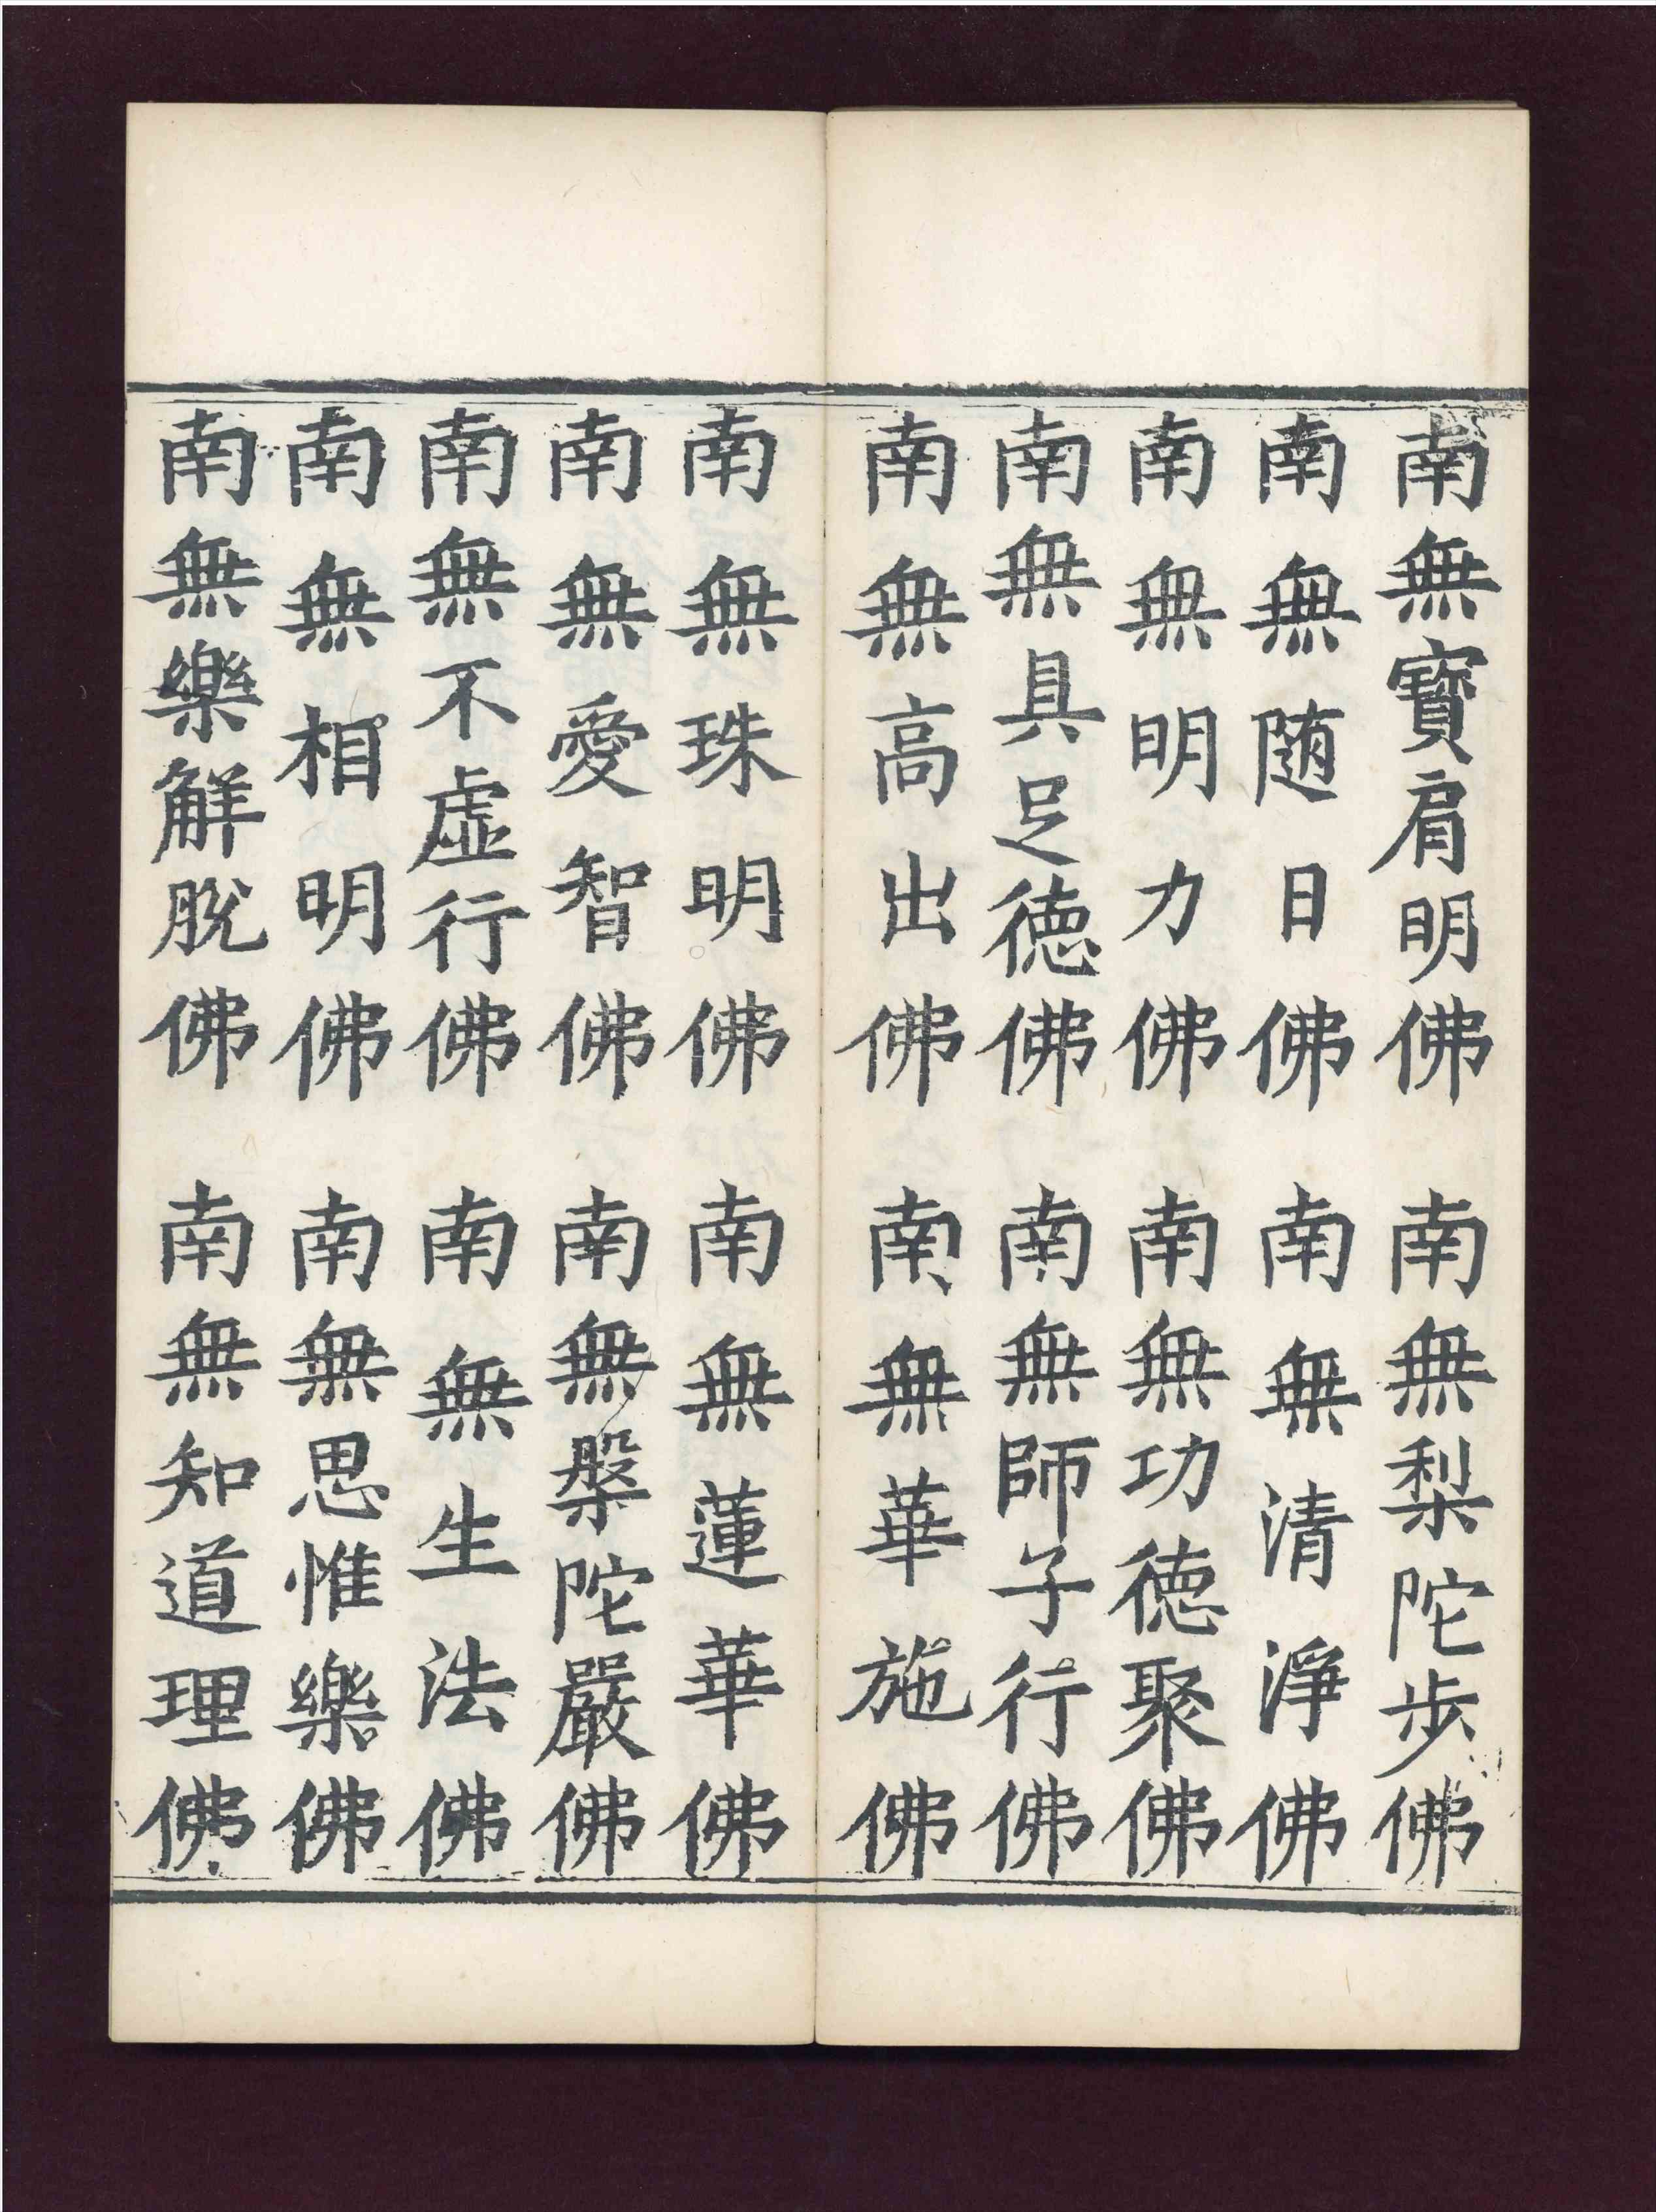 南無寶肩明佛　南無梨陀步佛
南無随日佛　南無清淨佛
南無明力佛　南無功徳聚佛
南無具足徳佛　南無師子行佛
南無高出佛　南無華施佛
南無珠明佛　南無蓮華佛
南無愛智佛　南無槃陀嚴佛
南無不虛行佛　南無生法佛
南無相明佛　南無思惟樂佛
南無樂解脫佛　南無知道理佛